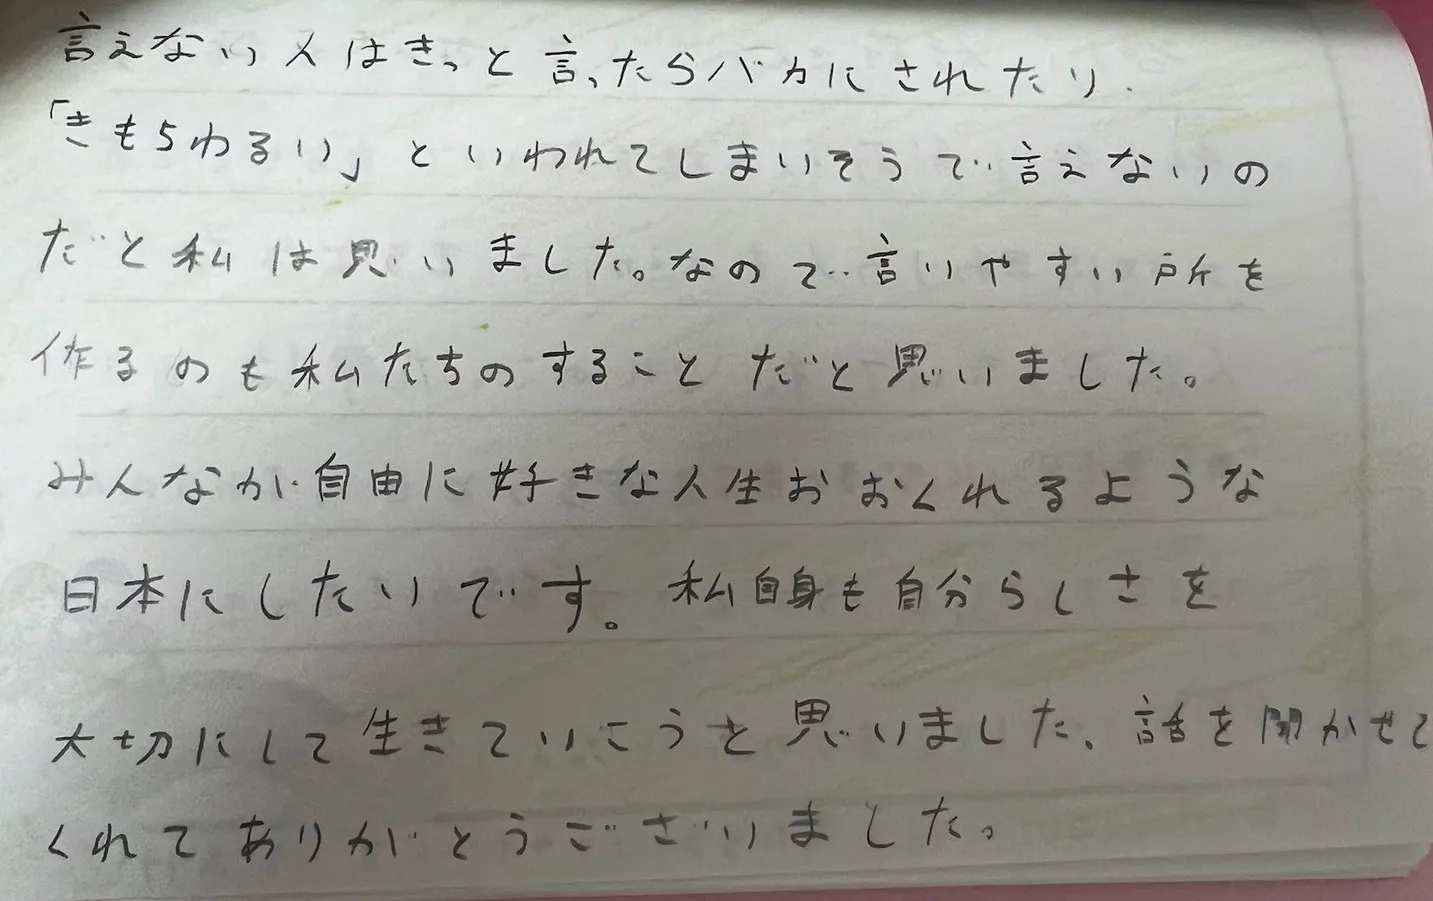 言えない人はきっと言ったらバカにされたり
「きもちわるい」といわれてしまいそうで言えないの
だと私は思いました。なので言いやすい所を
作るのも私たちのすることだと思いました。
みんなが自由に好きな人生おおくれるような
日本にしたいです。私自身も自分らしさを
大切にして生きていこうと思いました、話を聞かせて
くれてありがとうございました。